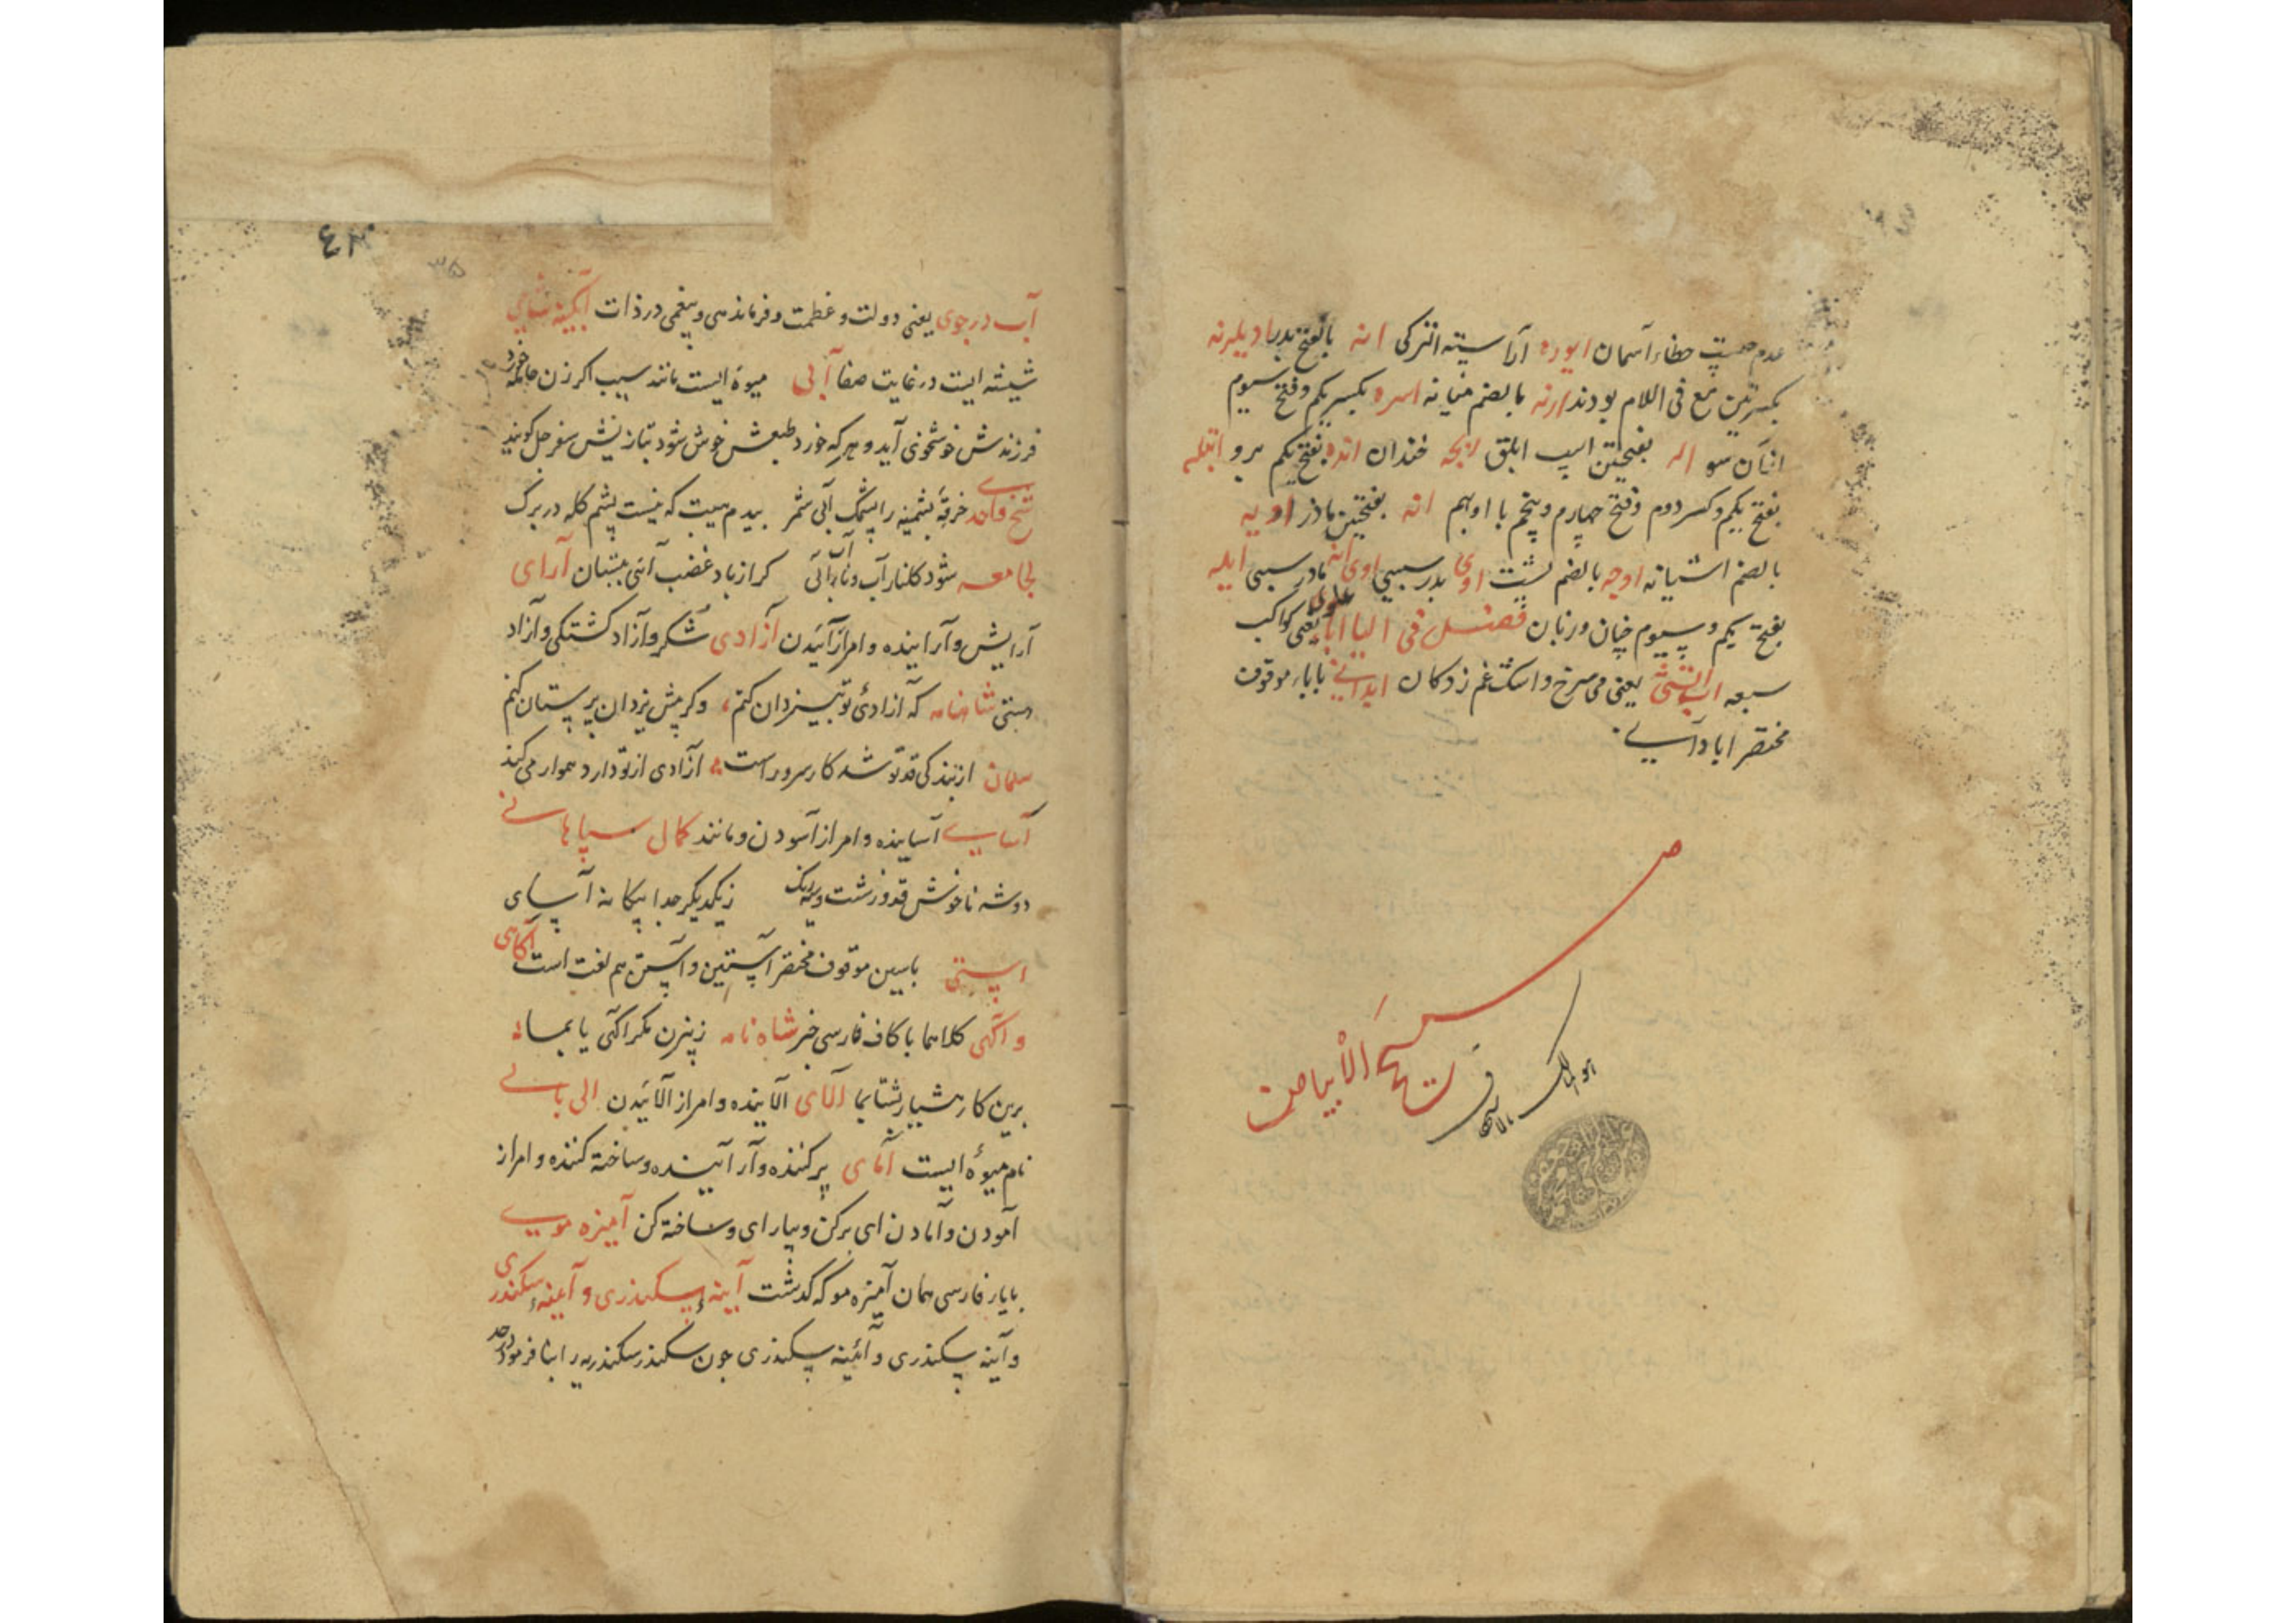 عدم حسیت خطاء آسمان ایوره آراسته انترکی انه بالفتح پدر بادیلیرنه
بکسرتین مع فی اللام بودند ارنه بالضم میانه اسره بکسر یکم و فتح سیوم
انسان سو اله بفتحتین اسپ ابلق انجه خندان انده بفتح یکم برو اتیله
بفتح یکم و کسر دوم و فتح چهارم و پنجم با او بهم انه بفتحتین مادر اویه
بالضم آشیانه اوجه بالضم پشت اوی پدر سببی اوی انه مادر سببی ایله
بفتح یکم و سیوم چنان و زنان فصل فی الیا ابا علوی یعنی کواکب
سبعه اب آتشی یعنی می سرخ و اشک غم زدکان ابدانی بابا موقوف
مختصر ابادانی
صح
نسخ الابیاض
٤٣
٣٥
آب در جوی یعنی دولت و عظمت و فرماندهی و بیغمی در ذات آبگینه شامی
شیشه ایست در غایت صفا آبی میوه ایست مانند سیب اکر زن حامله خورد
فرزندش خوشخوی آید و هر که خورد طبعش خوش شود بتازیش سفرجل کویند
شیخ واحدی خرقه پشمینه را پشمک آبی شمر بیدم هست که نیست پشم کله در برک
لجامعه شود کلنار آب و نار آبی کر از باد غضب آئی بستان آرای
آرایش و آراینده و امر از آرائیدن آزادی شکر و آزاد کشتکی و آزاد
مستی شاهنامه که آزادئ تو بیزدان کنم، و کر پیش یزدان پرستان کنم
سلمان از بندکی قد تو شد کار سرو راست آزادی از تو دارد هموار می کند
آسای آساینده و امر از آسودن و مانند کمال سپاهانی
دو شه ناخوش قد و زشت و یک رنک ز یکدیکر جدا بیکانه آسای
استی باسین موقوف مختصر آستین و آستن هم لغت است آکاهی
و آکهی کلاهما با کاف فارسی خبر شاه نامه ز بیژن مکر آکهی یابما
برین کار هشیار بشتابما آلای آلاینده و امر از آلائیدن الی بالی
نام میوه ایست آمای پر کننده و آراینده و ساخته کننده و امر از
آمودن و آمادن ای پر کن و بیارای و ساخته کن آمیزه مویی
بایار فارسی همان آمیزه مو که کذشت آینه اسکندری و آیینه اسکندری
و آینه سکندری و آئینه سکندری چون سکندر سکندریه را بنا فرمود در حد